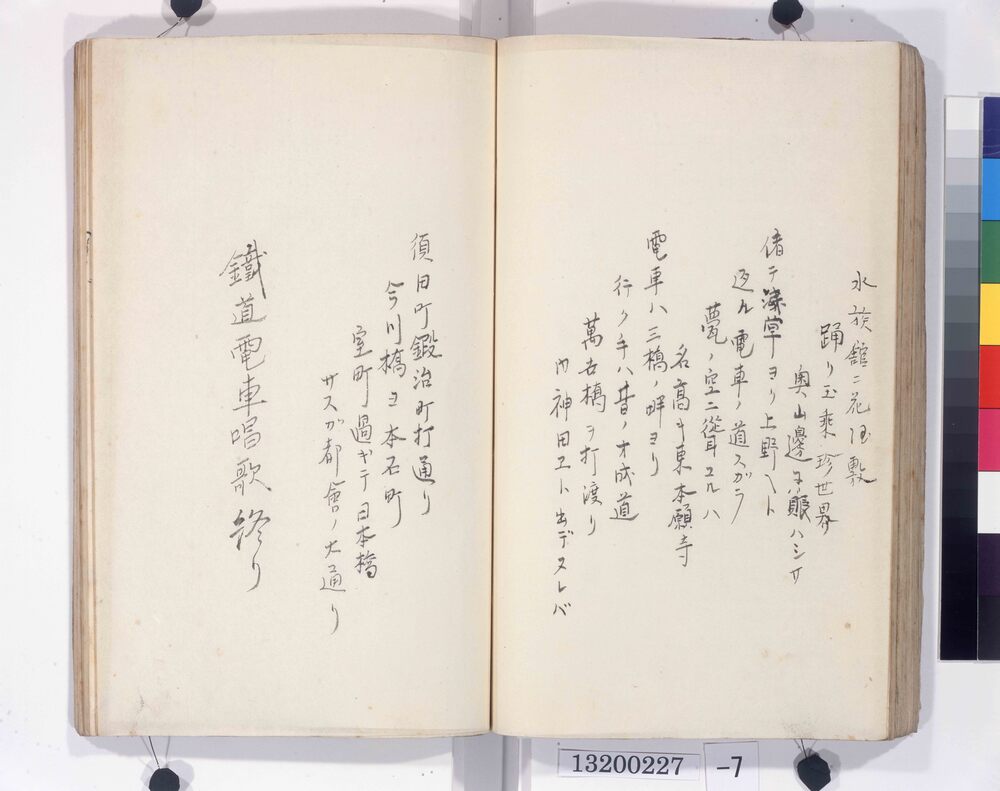 水族舘ニ花屋敷
踊り玉乗珍世界
奥山邊ヲ賑ハシサ
偖テ淺草ヨリ上野ヘト
返ル電車ノ道スガラ
甍ノ空ニ聳ユルハ
名高キ東本願寺
電車ハ三橋ノ畔ヨリ
行ク手ハ昔ノオ成道
萬世橋ヲ打渡リ
内神田ヱト出デヌレバ
須田町鍛冶町打通り
今川橋ヨ本石町
室町過ギテ日本橋
サスガ都會ノ大通り
鐵道電車唱歌終り
13200227
-7